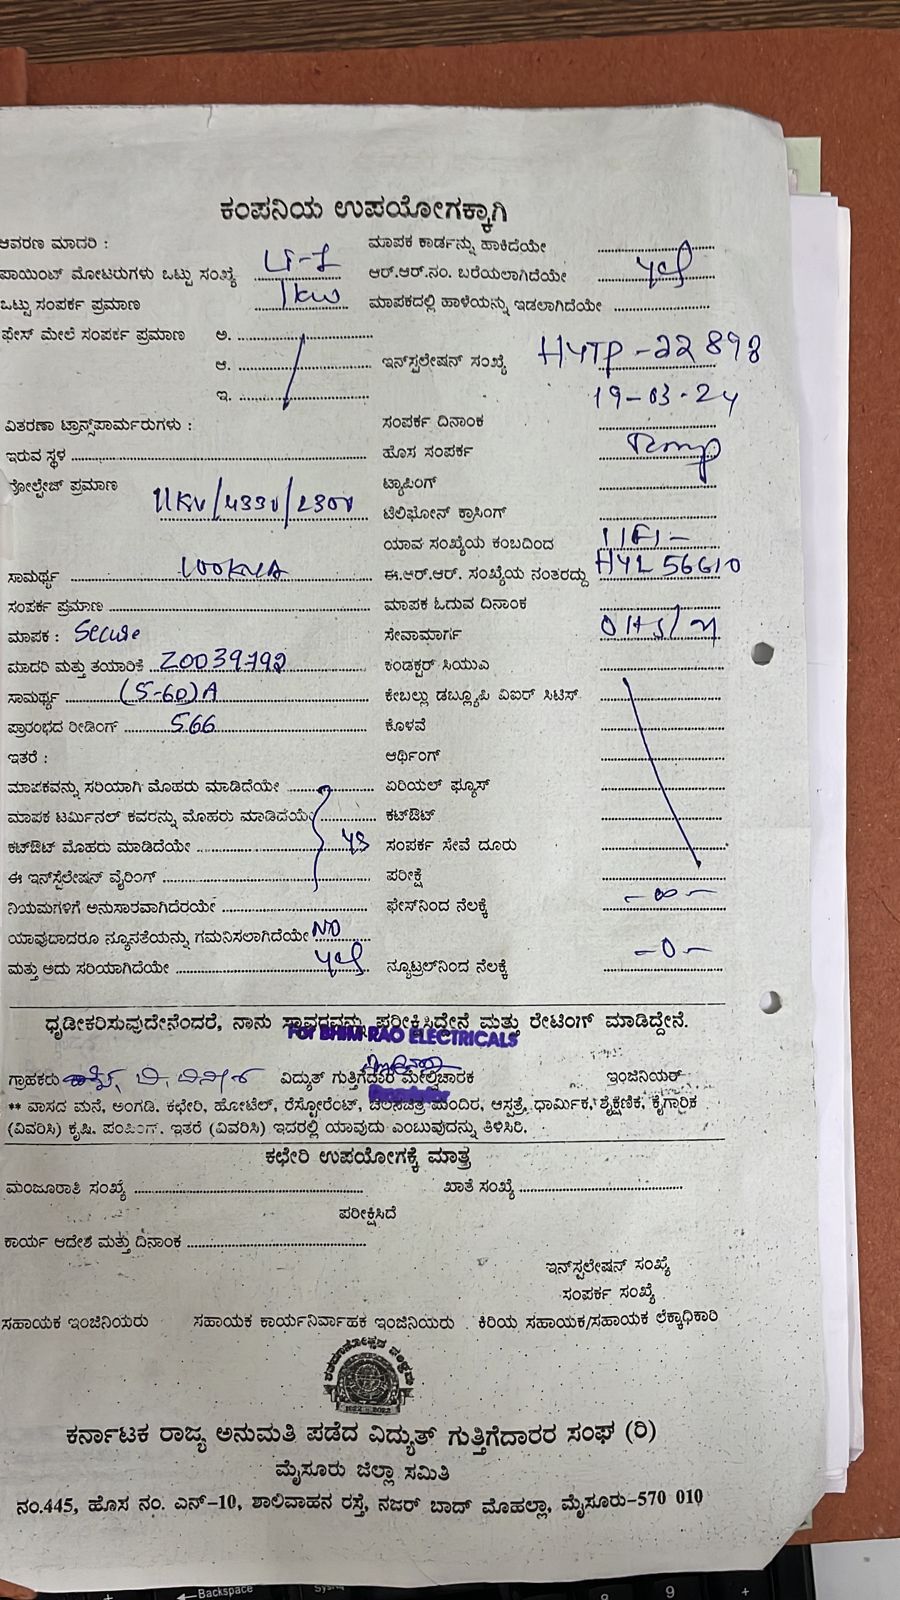 ಕಂಪನಿಯ ಉಪಯೋಗಕ್ಕಾಗಿ
ಆವರಣ ಮಾದರಿ : ಮಾಪಕ ಕಾರ್ಡನ್ನು ಹಾಕಿದೆಯೇ
ಪಾಯಿಂಟ್ ಮೋಟರುಗಳು ಒಟ್ಟು ಸಂಖ್ಯೆ LT-1 ಆರ್.ಆರ್.ನಂ. ಬರೆಯಲಾಗಿದೆಯೇ yes
ಒಟ್ಟು ಸಂಪರ್ಕ ಪ್ರಮಾಣ 1kw ಮಾಪಕದಲ್ಲಿ ಹಾಳೆಯನ್ನು ಇಡಲಾಗಿದೆಯೇ
ಫೇಸ್ ಮೇಲೆ ಸಂಪರ್ಕ ಪ್ರಮಾಣ ಅ.
ಆ. ಇನ್‌ಸ್ಟಲೇಷನ್ ಸಂಖ್ಯೆ HYTP-22898
ಇ. 19-03-24
ವಿತರಣಾ ಟ್ರಾನ್ಸ್‌ಪಾರ್ಮರುಗಳು : ಸಂಪರ್ಕ ದಿನಾಂಕ
ಇರುವ ಸ್ಥಳ ಹೊಸ ಸಂಪರ್ಕ Temp
ವೋಲ್ಟೇಜ್ ಪ್ರಮಾಣ 11KV/433V/230V ಟ್ಯಾಪಿಂಗ್
ಟೆಲಿಫೋನ್ ಕ್ರಾಸಿಂಗ್
ಯಾವ ಸಂಖ್ಯೆಯ ಕಂಬದಿಂದ
ಸಾಮರ್ಥ್ಯ 100KVA ಈ.ಆರ್.ಆರ್. ಸಂಖ್ಯೆಯ ನಂತರದ್ದು HYL56610
ಸಂಪರ್ಕ ಪ್ರಮಾಣ ಮಾಪಕ ಓದುವ ದಿನಾಂಕ
ಮಾಪಕ : Secure ಸೇವಾಮಾರ್ಗ
ಮಾದರಿ ಮತ್ತು ತಯಾರಿಕೆ Z0039792 ಕಂಡಕ್ಟರ್ ಸಿಯುಎ
ಸಾಮರ್ಥ್ಯ (5-60)A ಕೇಬಲ್ಲು ಡಬ್ಲ್ಯೂಪಿ ವಿಐರ್ ಸಿಟಿಸ್
ಪ್ರಾರಂಭದ ರೀಡಿಂಗ್ 566 ಕೊಳವೆ
ಇತರೆ : ಆರ್ಥಿಂಗ್
ಮಾಪಕವನ್ನು ಸರಿಯಾಗಿ ಮೊಹರು ಮಾಡಿದೆಯೇ ಏರಿಯಲ್ ಫ್ಯೂಸ್
ಮಾಪಕ ಟರ್ಮಿನಲ್ ಕವರನ್ನು ಮೊಹರು ಮಾಡಿದೆಯೇ ಕಟ್‌ಔಟ್
ಕಟ್‌ಔಟ್ ಮೊಹರು ಮಾಡಿದೆಯೇ ys ಸಂಪರ್ಕ ಸೇವೆ ದೂರು
ಈ ಇನ್‌ಸ್ಟೆಲೇಷನ್ ವೈರಿಂಗ್ ಪರೀಕ್ಷೆ
ನಿಯಮಗಳಿಗೆ ಅನುಸಾರವಾಗಿದೆರಯೇ ಫೇಸ್‌ನಿಂದ ನೆಲಕ್ಕೆ -∞-
ಯಾವುದಾದರೂ ನ್ಯೂನತೆಯನ್ನು ಗಮನಿಸಲಾಗಿದೆಯೇ NO
ಮತ್ತು ಅದು ಸರಿಯಾಗಿದೆಯೇ yes ನ್ಯೂಟ್ರಲ್‌ನಿಂದ ನೆಲಕ್ಕೆ -0-
ಧೃಡೀಕರಿಸುವುದೇನೆಂದರೆ, ನಾನು ಸ್ಥಾವರವನ್ನು ಪರೀಕ್ಷಿಸಿದ್ದೇನೆ ಮತ್ತು ರೇಟಿಂಗ್ ಮಾಡಿದ್ದೇನೆ.
For BHIM RAO ELECTRICALS
ಗ್ರಾಹಕರು ವಿದ್ಯುತ್ ಗುತ್ತಿಗೆದಾರ ಮೇಲ್ವಿಚಾರಕ ಇಂಜಿನಿಯರ್
** ವಾಸದ ಮನೆ, ಅಂಗಡಿ. ಕಛೇರಿ, ಹೋಟೆಲ್, ರೆಸ್ಟೋರೆಂಟ್, ಚಲನಚಿತ್ರ ಮಂದಿರ, ಆಸ್ಪತ್ರೆ, ಧಾರ್ಮಿಕ, ಶೈಕ್ಷಣಿಕ, ಕೈಗಾರಿಕ
(ವಿವರಿಸಿ) ಕೃಷಿ. ಪಂಪಿಂಗ್. ಇತರೆ (ವಿವರಿಸಿ) ಇದರಲ್ಲಿ ಯಾವುದು ಎಂಬುವುದನ್ನು ತಿಳಿಸಿರಿ.
ಕಛೇರಿ ಉಪಯೋಗಕ್ಕೆ ಮಾತ್ರ
ಮಂಜೂರಾತಿ ಸಂಖ್ಯೆ ಖಾತೆ ಸಂಖ್ಯೆ
ಪರೀಕ್ಷಿಸಿದೆ
ಕಾರ್ಯ ಆದೇಶ ಮತ್ತು ದಿನಾಂಕ
ಇನ್‌ಸ್ಟಲೇಷನ್ ಸಂಖ್ಯೆ
ಸಂಪರ್ಕ ಸಂಖ್ಯೆ
ಸಹಾಯಕ ಇಂಜಿನಿಯರು ಸಹಾಯಕ ಕಾರ್ಯನಿರ್ವಾಹಕ ಇಂಜಿನಿಯರು . ಕಿರಿಯ ಸಹಾಯಕ/ಸಹಾಯಕ ಲೆಕ್ಕಾಧಿಕಾರಿ
ಕರ್ನಾಟಕ ರಾಜ್ಯ ಅನುಮತಿ ಪಡೆದ ವಿದ್ಯುತ್ ಗುತ್ತಿಗೆದಾರರ ಸಂಘ (ರಿ)
ಮೈಸೂರು ಜಿಲ್ಲಾ ಸಮಿತಿ
ನಂ.445, ಹೊಸ ನಂ. ಎನ್-10, ಶಾಲಿವಾಹನ ರಸ್ತೆ, ನಜರ್ ಬಾದ್ ಮೊಹಲ್ಲಾ, ಮೈಸೂರು-570 010
Backspace
9 +